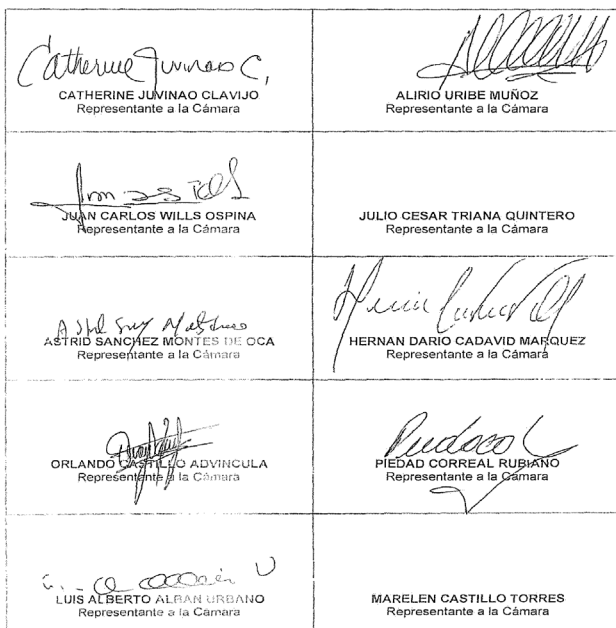 Catherine Juvinao C,
CATHERINE JUVINAO CLAVIJO
Representante a la Cámara
ALIRIO URIBE MUÑOZ
Representante a la Cámara
JUAN CARLOS WILLS OSPINA
Representante a la Cámara
JULIO CESAR TRIANA QUINTERO
Representante a la Cámara
ASTRID SANCHEZ MONTES DE OCA
Representante a la Cámara
HERNAN DARIO CADAVID MARQUEZ
Representante a la Cámara
ORLANDO CASTILLO ADVINCULA
Representante a la Cámara
PIEDAD CORREAL RUBIANO
Representante a la Cámara
LUIS ALBERTO ALBAN URBANO
Representante a la Cámara
MARELEN CASTILLO TORRES
Representante a la Cámara